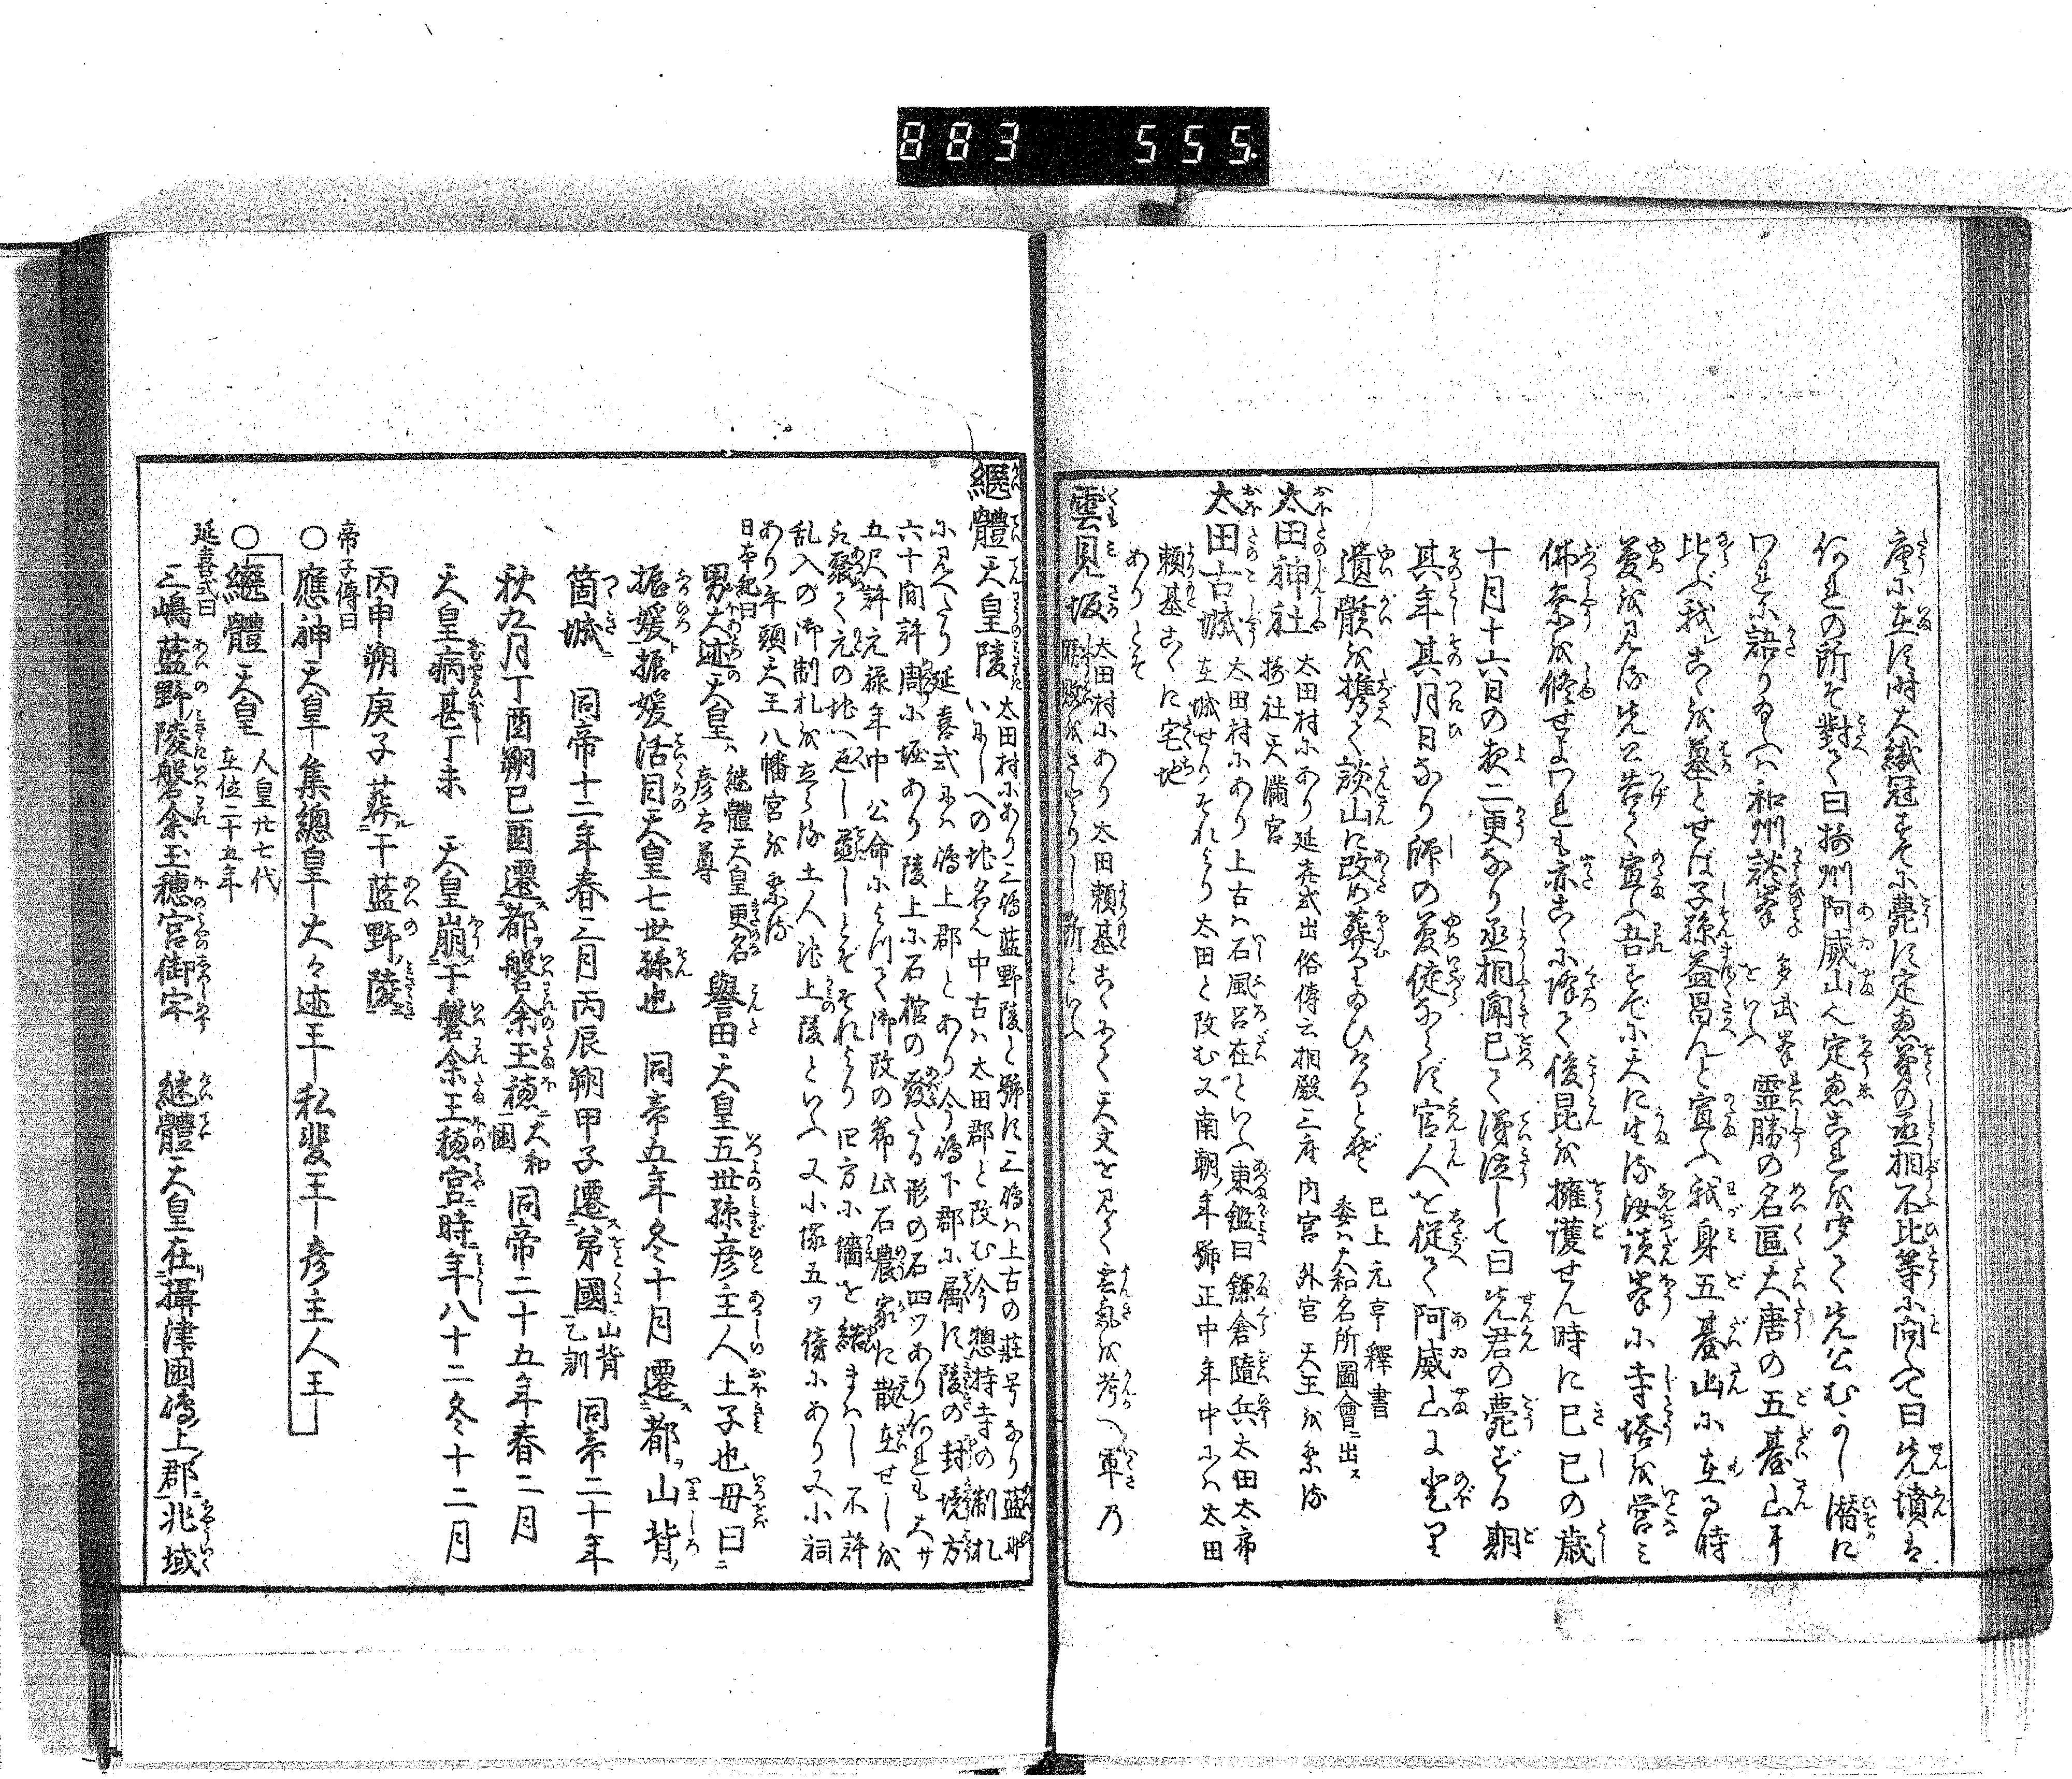 883 555.
唐に在す時大織冠すでに薨に定惠弟の丞相不比等に向て曰先墳は
何れの所ぞ對て曰摂州阿威山也定惠これを聞て先公むかし潜に
われに語り給ふ和州談峯多武峯といふ靈勝の名區大唐の五臺山に
比ぶ我こゝを墓とせば子孫益昌んと宣ふ我身五臺山に在る時
夢を見る先公告て宣ふ吾すでに天に生る汝談峯に寺塔を營み
佛乗を修せよわれも亦こゝに降て後昆を擁護せん時に己巳の歳
十月十六日の夜二更なり丞相聞已て涕泣して曰先君の薨ずる期
其年其月日なり師の夢徒ならず官人を従て阿威山に登里
遺骸を携て談山に改め葬り給ひけるとぞ
已上元亨釋書
委ハ大和名所圖會ニ出ス
太田神社
太田村にあり延喜式出俗傳云相殿三座内宮外宮天王を祭る
摂社天滿宮
太田古城
太田村にあり上古は石風呂在といふ東鑑曰鎌倉隨兵太田太郎
在城せりそれより太田と改む又南朝年號正中年中には太田
頼基こゝに宅地
ありとぞ
雲見坂
太田村にあり太田頼基こゝにて天文を見て雲氣を考へ軍乃
勝敗をさとりし所といふ
繼體天皇陵
太田村にあり三嶋藍野陵と號す三嶋は上古の莊号なり藍野
いにしへの地名也中古は太田郡と改む今惣持寺の制札
に見へたり延喜式には嶋上郡とあり今嶋下郡に属す陵の封境方
六十間許周に堀あり陵上に石棺の發たる形の石四ツあり何れも大サ
五尺許元禄年中公命によつて御改の節此石農家に散在せしを
取聚て元の地へ返し遊しとぞそれより四方に墻を繞まハし不許
乱入の御制札を立らる土人池上陵といふ又小塚五ツ傍にあり又小祠
あり午頭天王八幡宮を祭る
日本紀曰
男大迹天皇ハ繼體天皇更名彦太尊譽田天皇五世孫彦主人王子也母曰
振媛振媛活目天皇七世孫也同帝五年冬十月遷都山背
箇城同帝十二年春三月丙辰朔甲子遷弟國山背乙訓同帝二十年
秋九月丁酉朔己酉遷都磐余玉穂大和國同帝二十五年春二月
天皇病甚丁未天皇崩于磐余玉穂宮時年八十二冬十二月
丙申朔庚子葬于藍野陵
帝子傳曰
○應神天皇—集總皇—大々迹王—私斐王—彦主人王
○繼體天皇人皇廿七代在位二十五年
延喜式曰
三嶋藍野陵磐余玉穂宮御宇繼體天皇在攝津國嶋上郡兆域